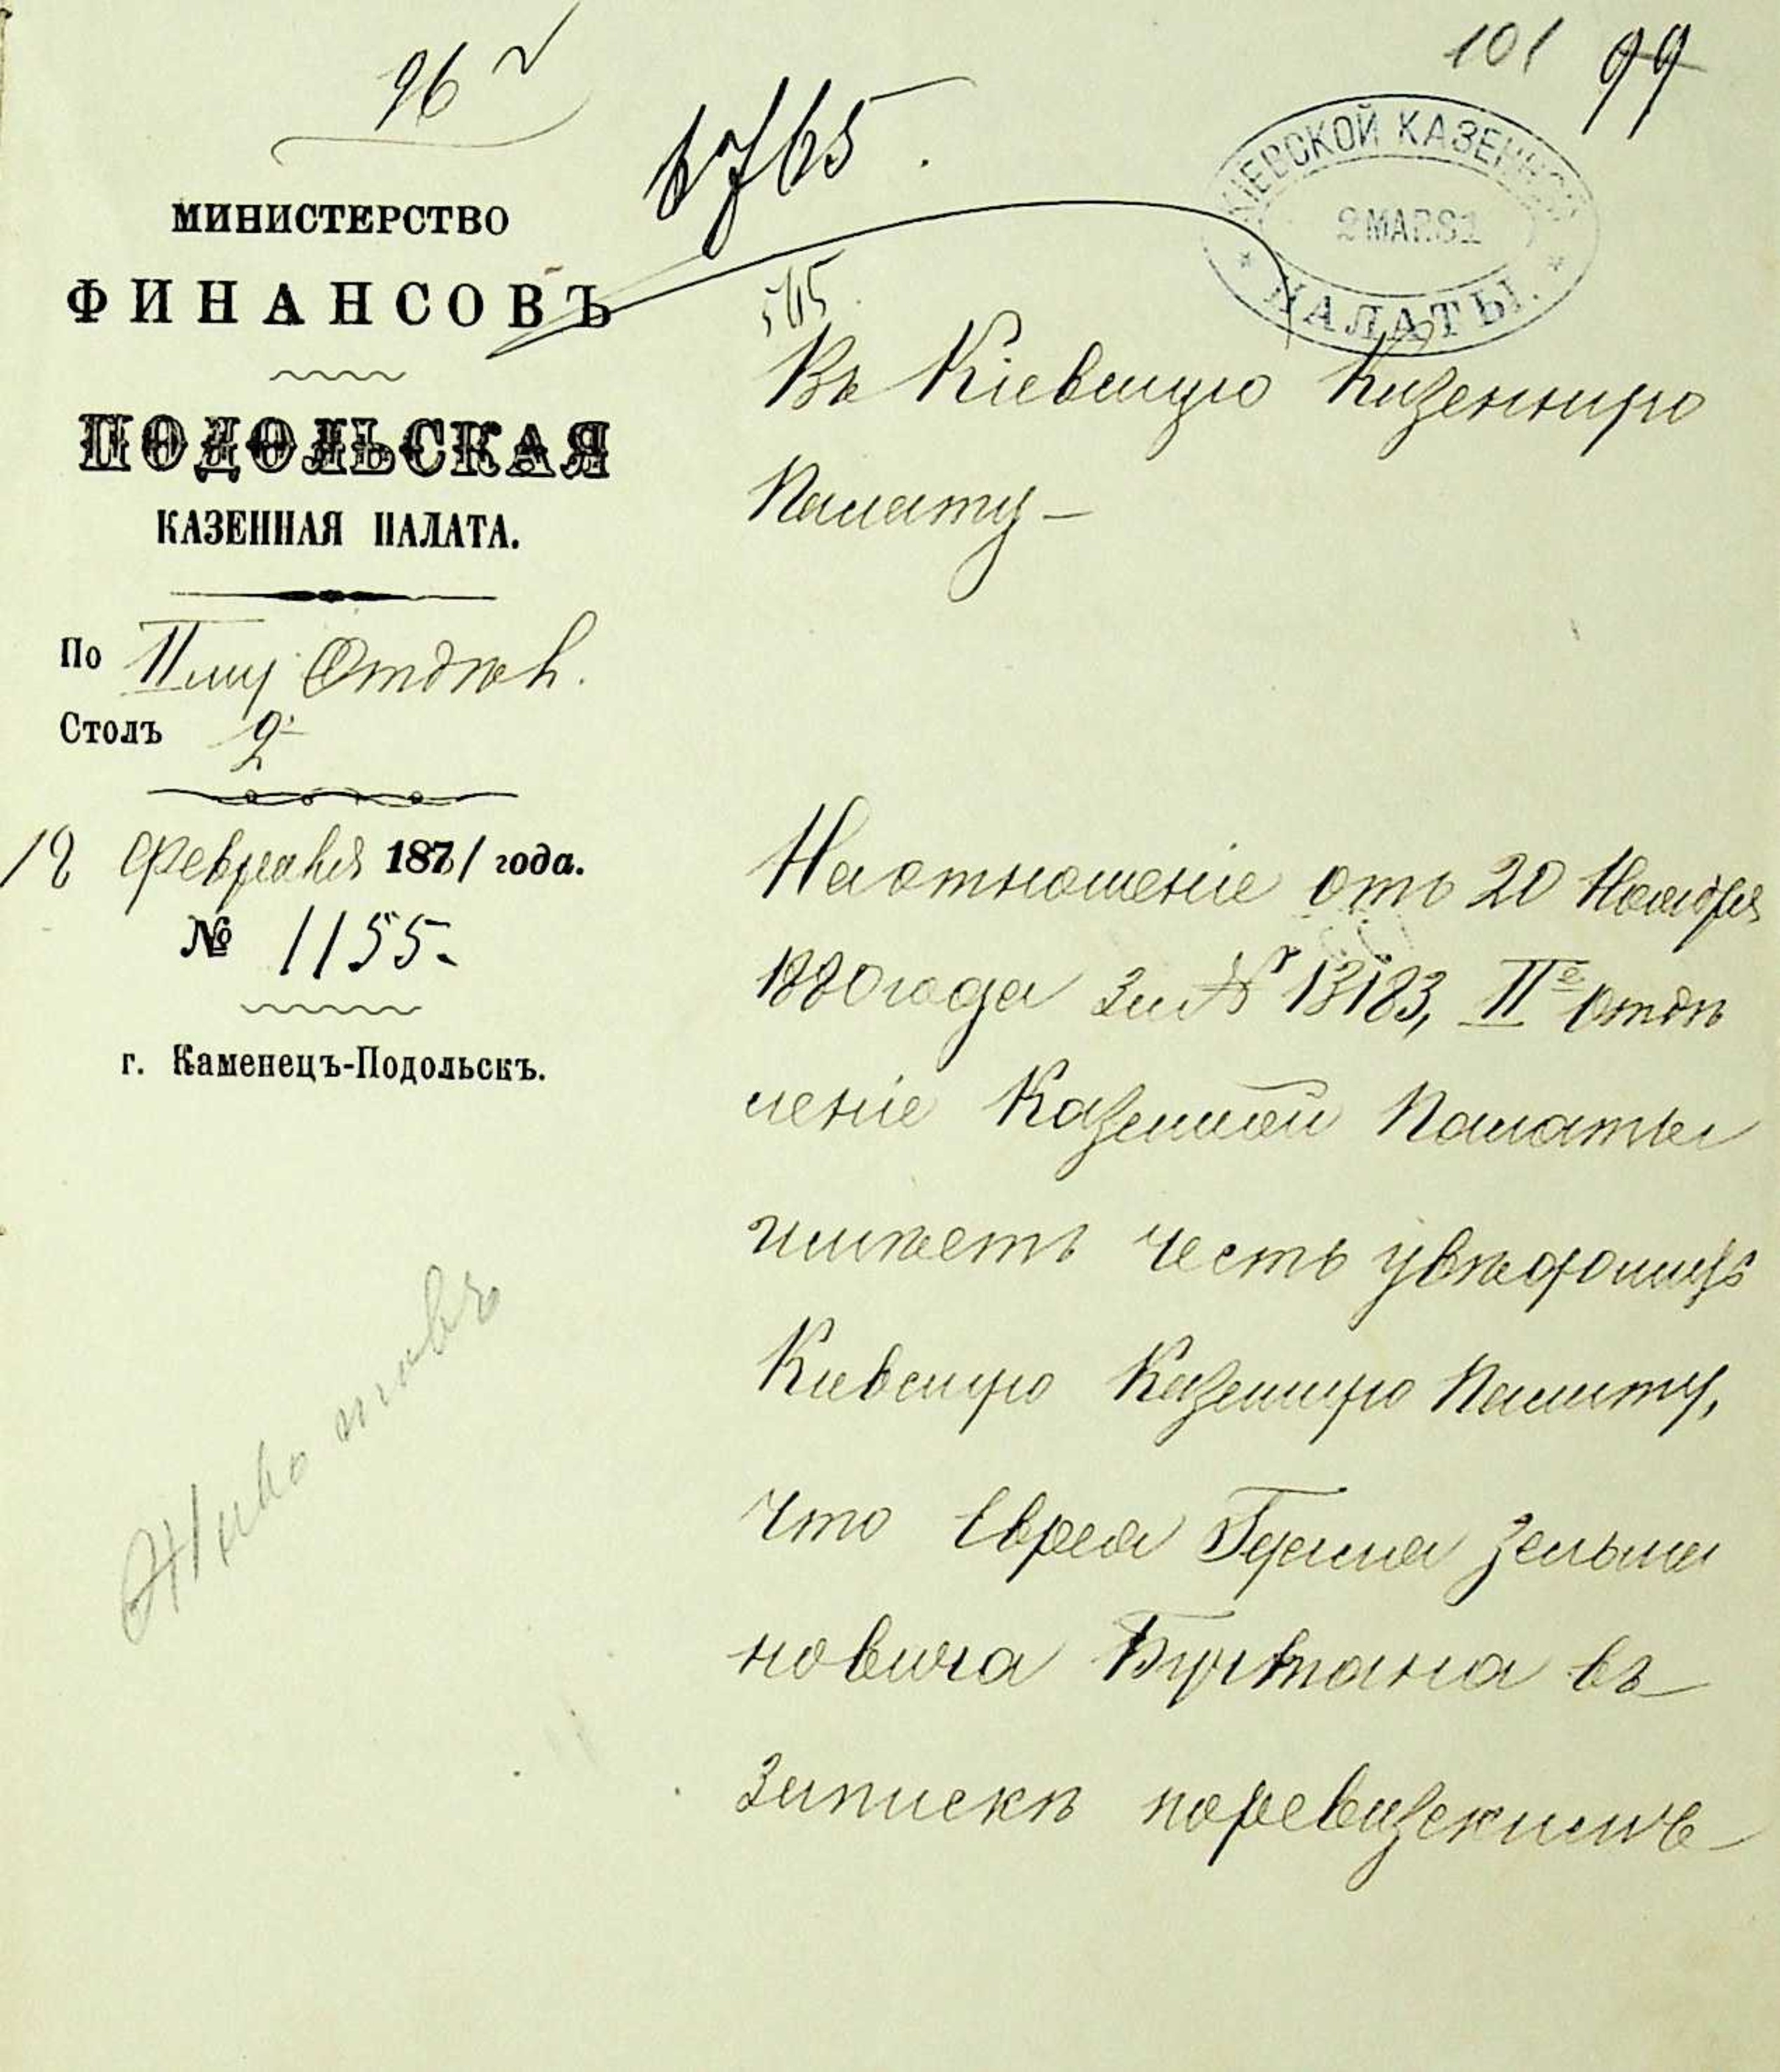 96
101 99
6765.
КІЕВСКОЙ КАЗЕННОЙ
2 МАР.81
ПАЛАТЫ.
МИНИСТЕРСТВО
ФИНАНСОВЪ
ПОДОЛЬСКАЯ
КАЗЕННАЯ ПАЛАТА.
По II му Отдѣл.
Столъ 2
18 Февраля 1881 года.
№ 1155.
г. Каменецъ-Подольскъ.
565
Въ Кіевскую Казенную
Палату –
На отношеніе отъ 20 Ноября
1880 года за № 13183, IIе Отдѣ
леніе Казенной Палаты
имѣетъ честь увѣдомить
Кіевскую Казенную Палату,
что Еврея Зельма
новича въ
запискѣ по ревизскимъ